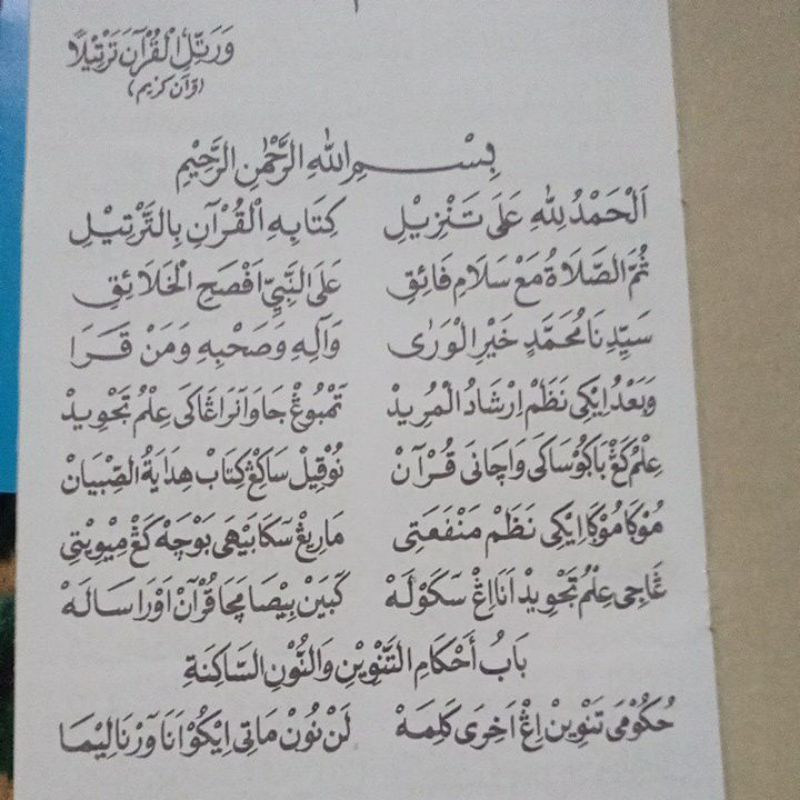 وَرَتِّلِ الْقُرْآنَ تَرْتِيْلًا
(قرآن كريم)
بِسْمِ اللهِ الرَّحْمٰنِ الرَّحِيْمِ
اَلْحَمْدُ لِلّٰهِ عَلَى تَنْزِيْلِ كِتَابِهِ الْقُرْآنِ بِالتَّرْتِيْلِ
ثُمَّ الصَّلَاةُ مَعْ سَلَامِ فَائِقِ عَلَى النَّبِيِّ اَفْصَحِ الْخَلَائِقِ
سَيِّدِنَا مُحَمَّدٍ خَيْرِ الْوَرٰى وَآلِهِ وَصَحْبِهِ وَمَنْ قَرَا
وَبَعْدُ اِيْكِى نَظَمْ اِرْشَادُ الْمُرِيدْ تَمْبُوڠْ جَاوَا نَرَاڠَاكَى عِلْمُ تَجْوِيدْ
عِلْمُ كَڠْ بَاكُوسَاكَى وَاچَانَى قُرْآنْ نُوقِيْلْ سَاكِڠْ كِتَابْ هِدَايَةُ الصِّبْيَانْ
مُوْكَا مُوْكَا اِيْكِى نَظَمْ مَنْفَعَتِى مَارِيڠْ سَكَابَيْهَى بَوْچَهْ كَڠْ مِيْوِيْتِى
ڠَاجِى عِلْمُ تَجْوِيدْ اَنَا اِڠْ سَكَوْلَهْ كَبَيْنْ بِيْصَا مَچَا قُرْآنْ اَوْرَا سَالَهْ
بَابُ أَحْكَامِ التَّنْوِيْنِ وَالنُّوْنِ السَّاكِنَةِ
حُكُوْمَى تَنْوِيْنْ اِڠْ اَخِرَى كَلِمَهْ لَنْ نُوْنْ مَاتِى اِيْكُوْ اَنَا وَرْنَا لِيْمَا